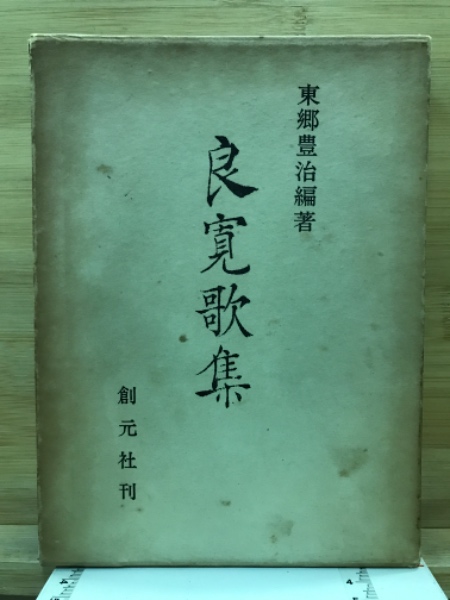 東郷豊治編著
良寛歌集
創元社刊